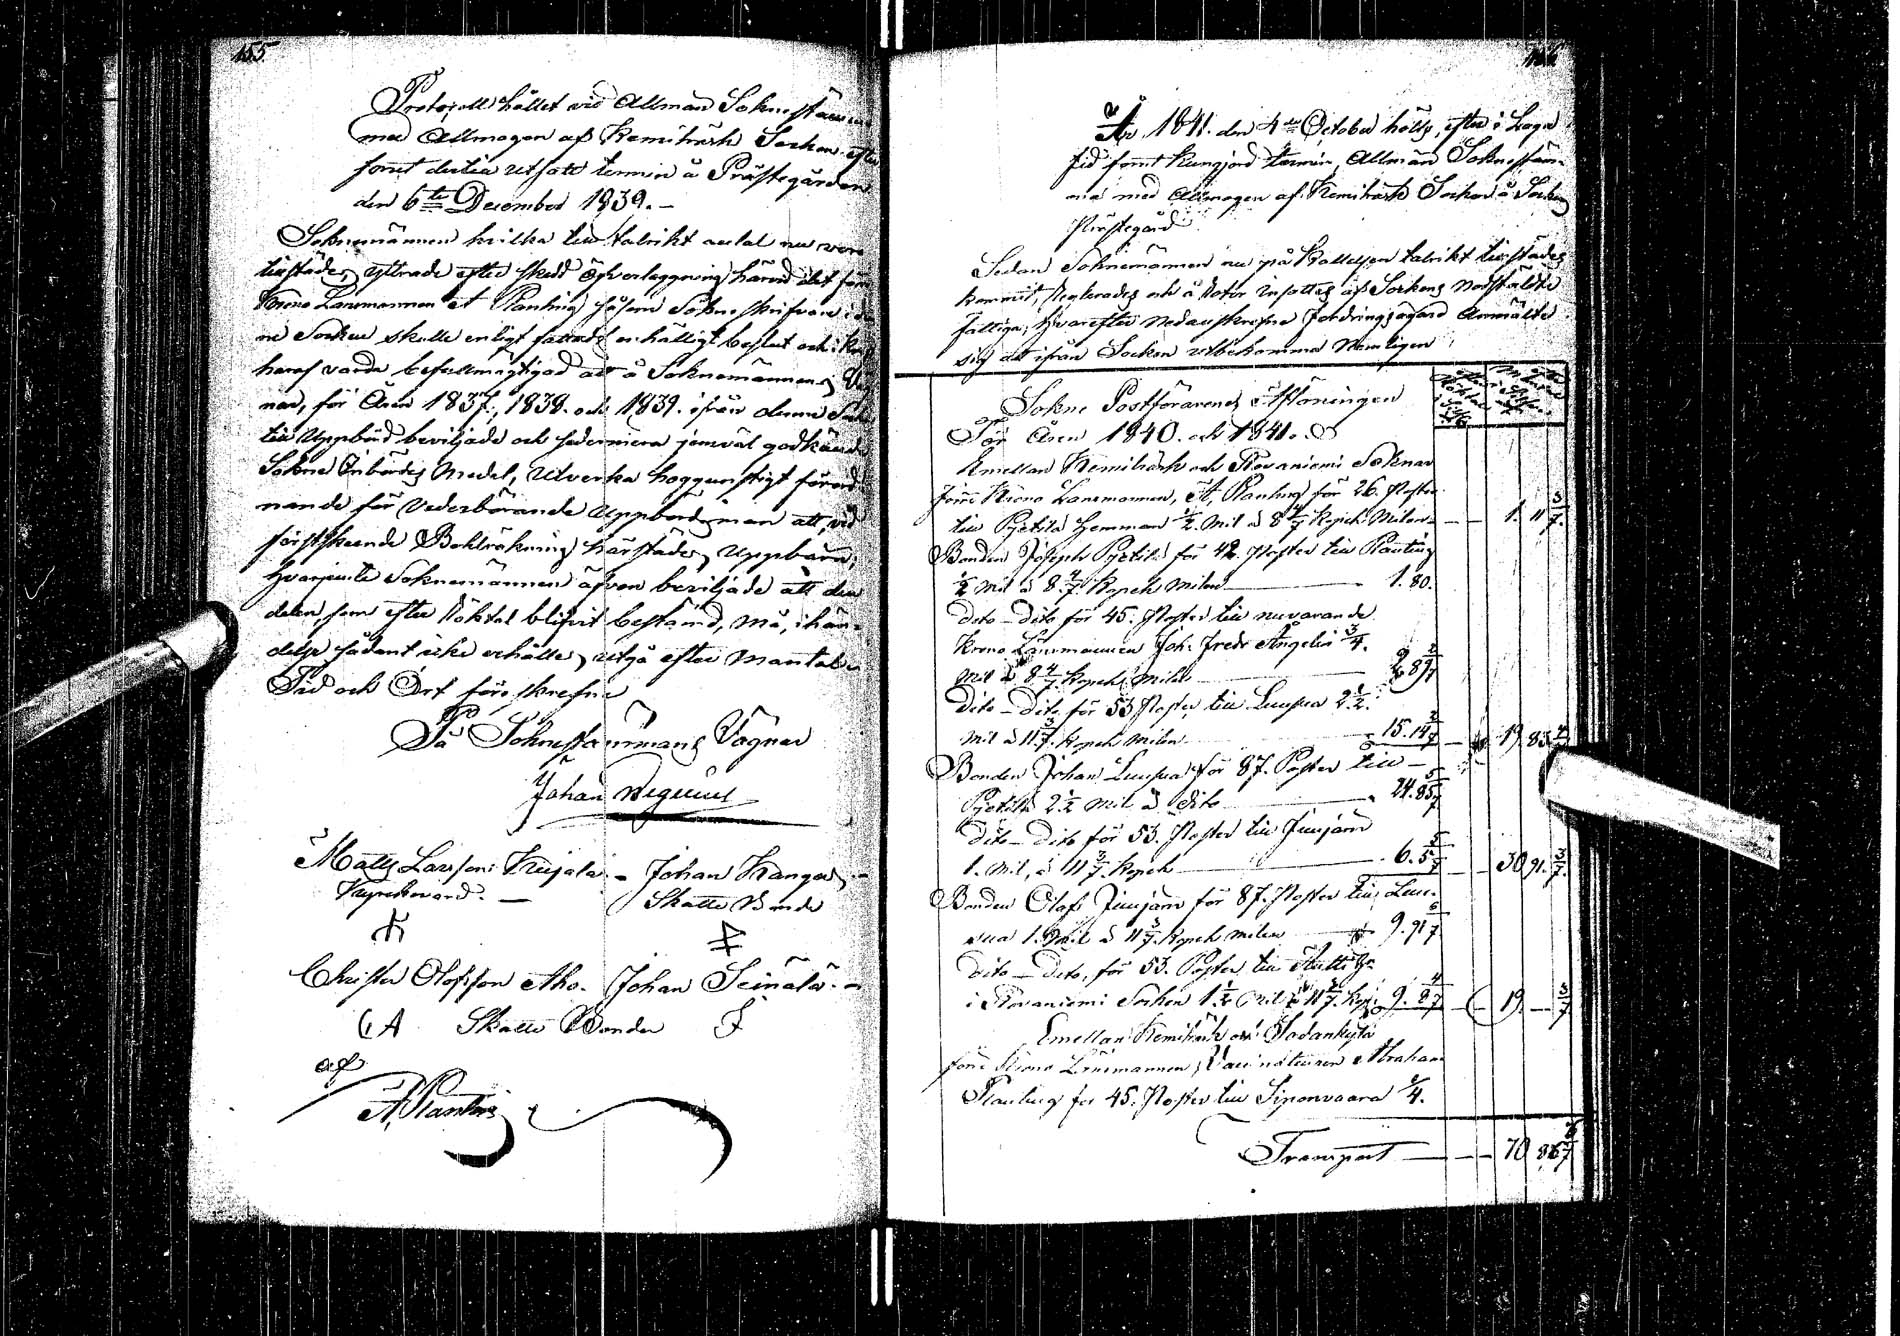 155.
Protocoll hållet vid Allmän Sokne stämma
med Allmogen af Kemiträsk Socken efter
förut dertill utsatt termin å Prästegården
den 6te December 1839. –
Soknemännen hvilka till talrikt antal nu voro
tillstädes yttrade efter skedd öfverläggning härvid det förre
Krono Länsmannen A Planting såsom Sokne skrifvare i den
ne Socken skulle enligt fattadt enhälligt beslut och i kraft
häraf varda befullmägtigad att å Soknemännens Väg
nar, för Åren 1837., 1838. och 1839. ifrån denna
till Uppbörd beviljade och sedermera jemväl godkände
Sokne Inbördes Medel, utverka höggunstigt förord
nande för Vederbörande Uppbördsman att, vid
förstskeende Bohlräkning härstädes uppbära;
hvarjemte Soknemännen äfven beviljade att den
delen, som efter Röktal blifvit bestämd, må, i hän-
delse sådant icke erhålles, utgå efter Mantal.
Tid och Ort förskrefne
På Sokne stämmans Vägnar
Johan Wegelius
Matts Larsson Kuijala – Johan Kangas –
Kyrkovärd. – Skatte Bonde
Christer Olofsson Aho. Johan Seinälä. –
Skatte Bönder
af
A. Planting
År 1841. den 4de October hölls, efter i Laga
tid förut kungjord termin, Allmän Sokne stäm-
ma med Allmogen af Kemiträsk Socken å Sockens
Prästegård
Sedan Soknemännen nu på Kallelsen talrikt tillstädes
kommit, och å af Sockens
fattiga, hvarefter nedanskrefne fordringsägare Anmälte
sig att ifrån Socken utbekomma Nemligen
Sokne Postförarenes Aflöningen
För Åren 1840. och 1841.
Emellan Kemiträsk och Rovaniemi Soknar
förre Krono Länsmannen, A, Planting för 26. Poster
till Pyetilä Hemman ½. Mil à 8 4/7 Kopek Milen – – 1. 11 3/7.
Bonden Joseph Pyetilä för 42. Poster till Planting
½ Mil à 8. 4/7. Kopek Milen – 1. 80.
Dito – Dito för 45. Poster till nuvarande
Krono Länsmannen Joh: Fredr Ångelin ¾.
Mil à 8 4/7. Kopek Milen – 2. 89 2/7
Dito – Dito för 53 Poster till Luusua 2 ½.
Mil à 11 3/7. Kopek Milen – 15. 14 2/7 – 19. 83 4/7
Bonden Johan Luusua för 87. Poster till –
Pyetilä 2 ½ Mil à Dito – 24. 85 5/7
Dito – Dito för 53. Poster till Juujärvi
1. Mil, à 11 3/7 Kopek – 6. 5 5/7 – – 30 91. 3/7.
Bonden Olof Juujärvi för 87. Poster till Luu-
sua 1. Mil à 11 3/7. Kopek Milen – 9. 91 6/7
Dito – Dito, för 53. Poster till
i Rovaniemi Socken 1. ½ Mil à 11 3/7. Kop: 9. 8 4/7 – 19. – 3/7.
Emellan Kemiträsk och Sodankylä
förre Krono Länsmannen, Vaccinateuren Abraham
Planting för 45. Poster till Siponvaara ¼.
Transport – – – 70 86